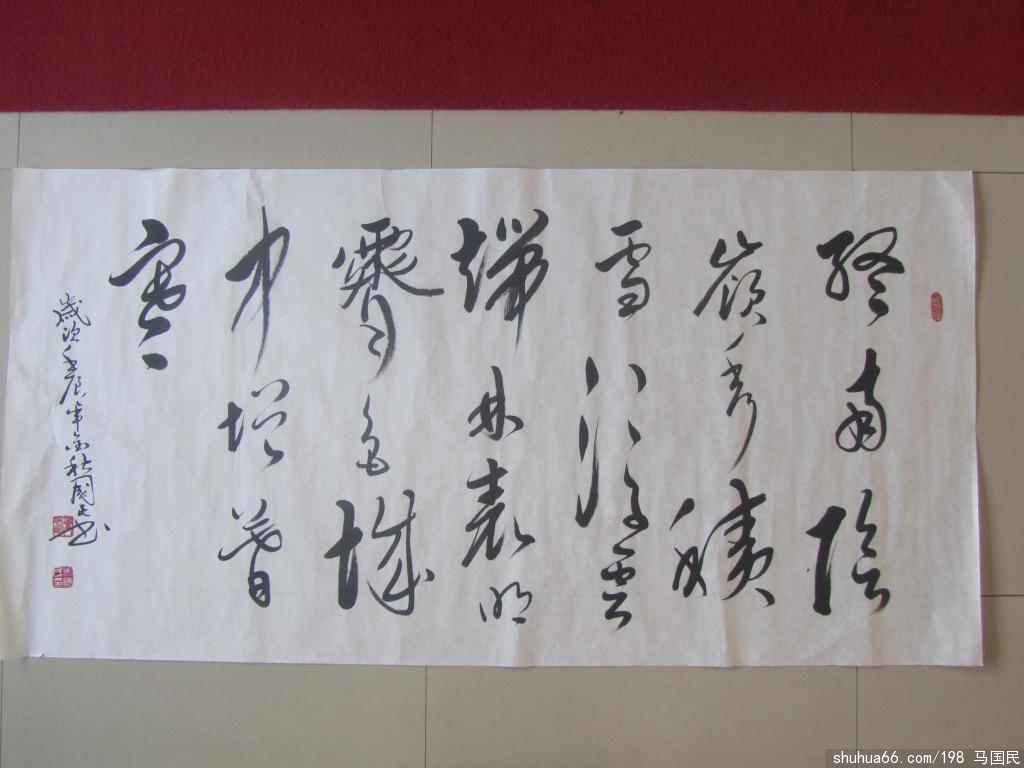 終南陰
嶺秀積
雪浮雲
端林表明
霽色城
中增暮
寒
歲次壬辰年金秋國民书
shuhua66.com/198 马国民